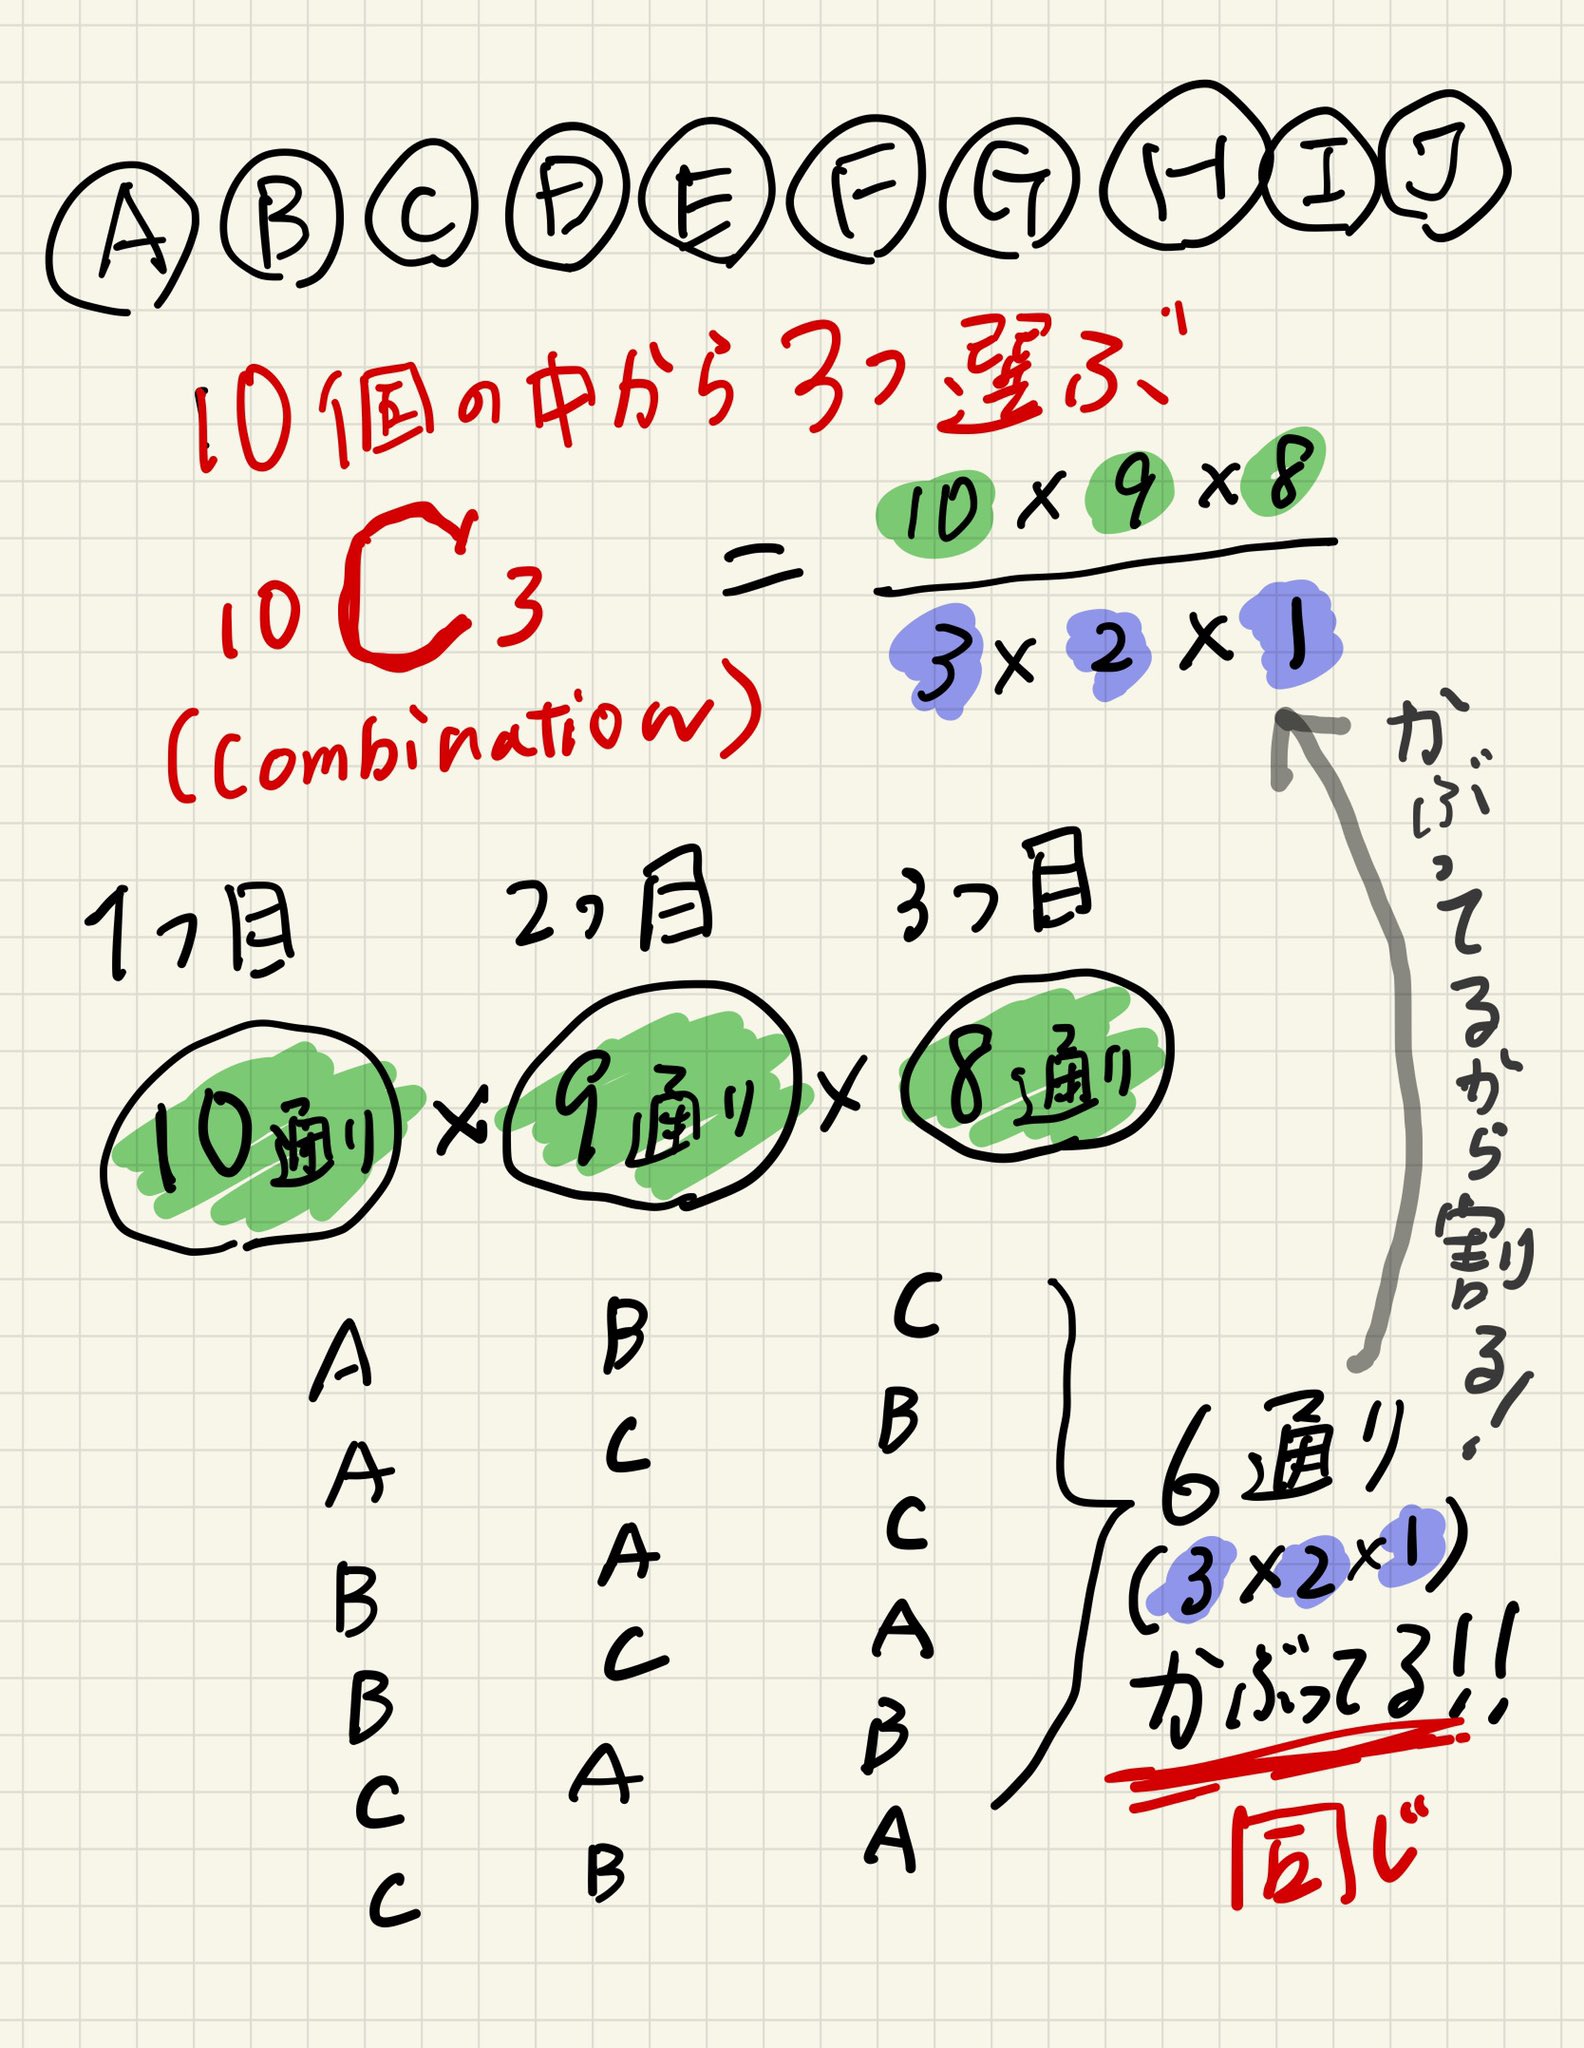 A B C D E F G H I J
10個の中から3つ選ぶ
10C3 = 10 × 9 × 8
3 × 2 × 1
(Combination)
かぶってるから割る!
1つ目 2つ目 3つ目
10通り × 9通り × 8通り
A B C
A C B
B A C
B C A
C A B
C B A
6通り
(3×2×1)
かぶってる!!
同じ